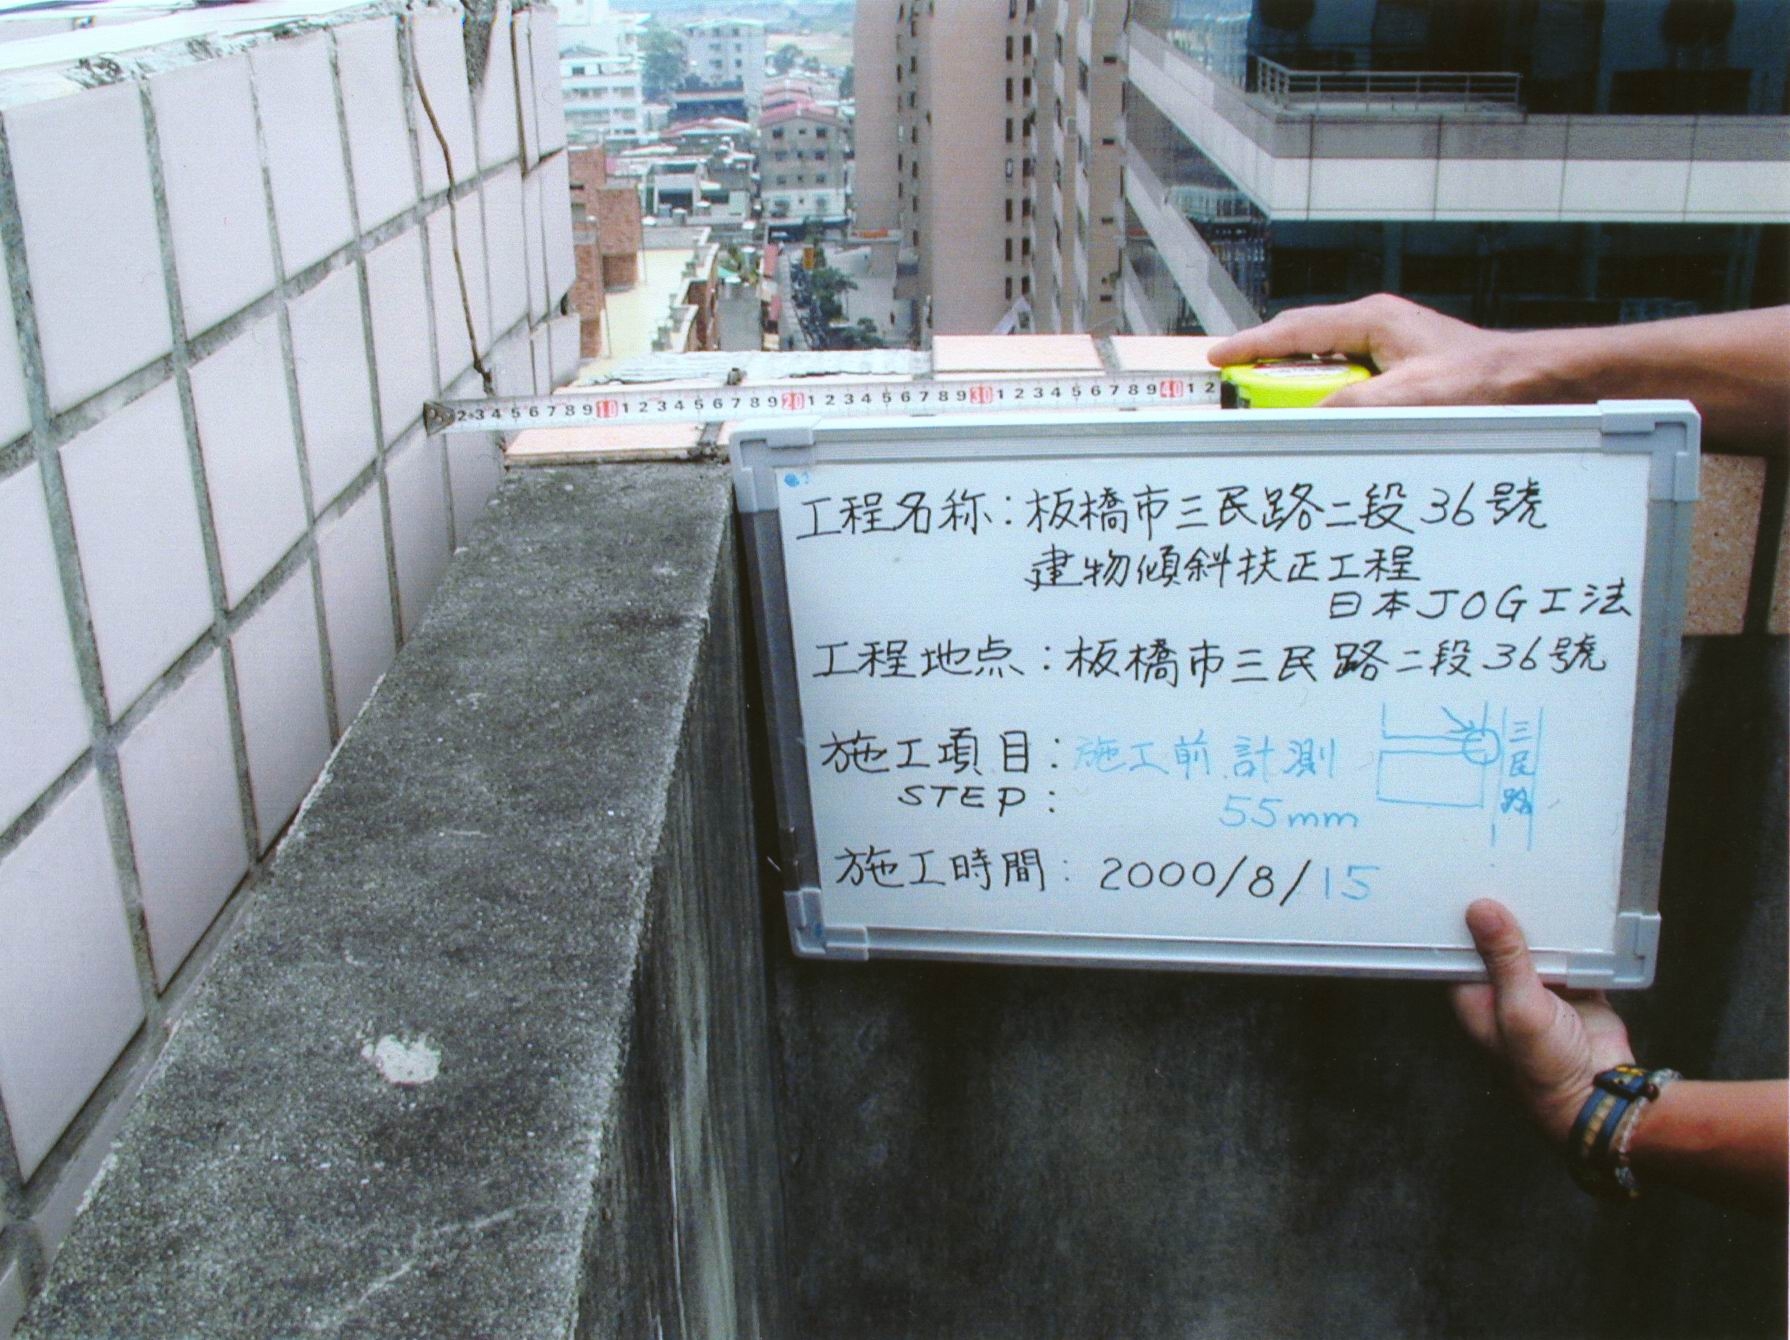 2 3 4 5 6 7 8 9 10 1 2 3 4 5 6 7 8 9 20 1 2 3 4 5 6 7 8 9 30 1 2 3 4 5 6 7 8 9 40 1 2
工程名称：板橋市三民路二段36號
建物傾斜扶正工程
日本JOG工法
工程地点：板橋市三民路二段36號
施工項目：施工前計測
三民路
STEP：
55mm
施工時間：2000/8/15